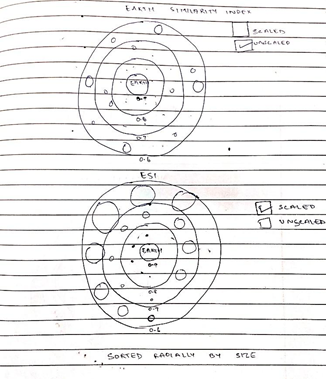 EARTH SIMILARITY INDEX
SCALED
UNSCALED
EARTH
0.9
0.8
0.7
0.6
ESI
SCALED
UNSCALED
EARTH
0.9
0.8
0.7
0.6
SORTED RADIALLY BY SIZE